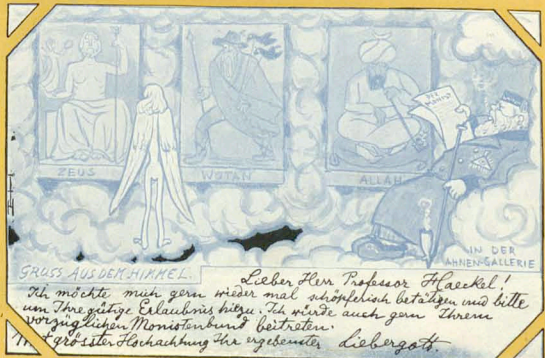 DER
MONIST
ZEUS
WOTAN
ALLAH
IN DER
AHNEN-GALLERIE
GRUSS AUS DEM HIMMEL.
Lieber Herr Professor Haeckel!
Ich möchte mich gern wieder mal schöpferisch betätigen und bitte
um Ihre gütige Erlaubnis hiezu. Ich würde auch gern Ihrem
vorzüglichen Monistenbund beitreten.
Mit grösster Hochachtung Ihr ergebenster Liebergott.